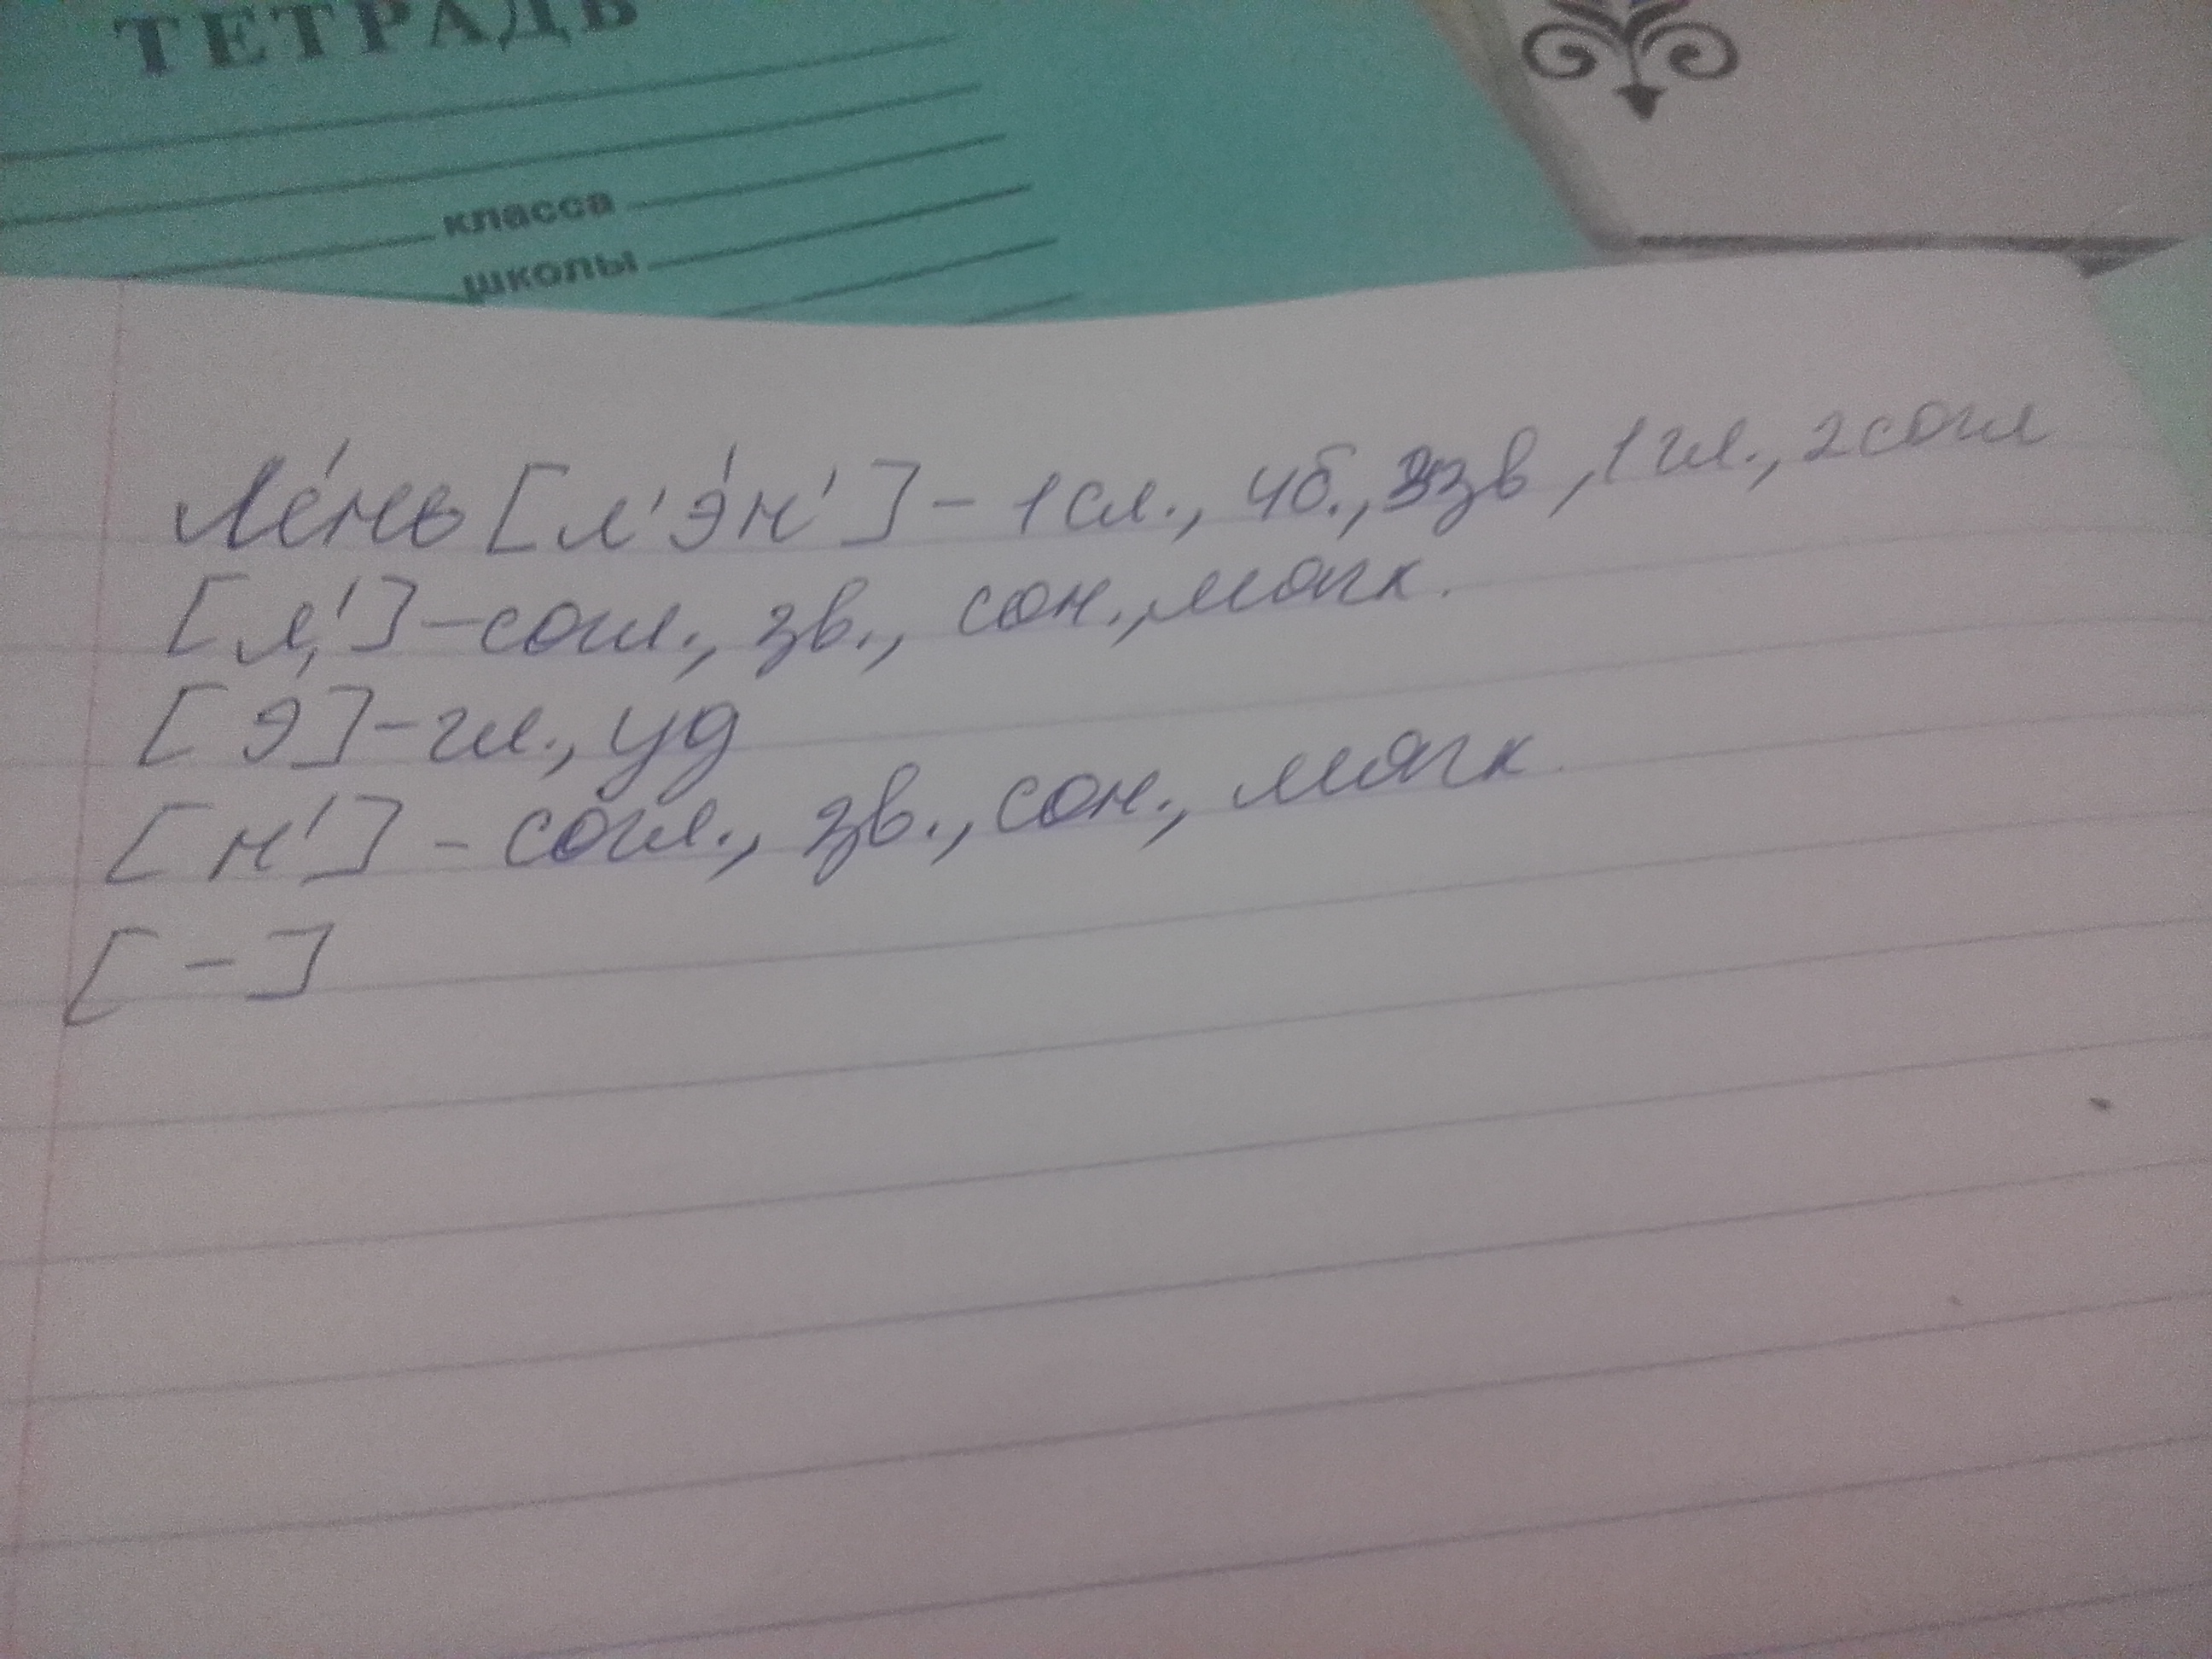 ТЕТРАДЬ
класса
школы
Ле́нь [л'э́н'] – 1 сл., 4б., 3зв, 1 гл., 2 согл
[л'] – согл., зв., сон., мягк.
[э́] – гл., уд
[н'] – согл., зв., сон., мягк.
[–]